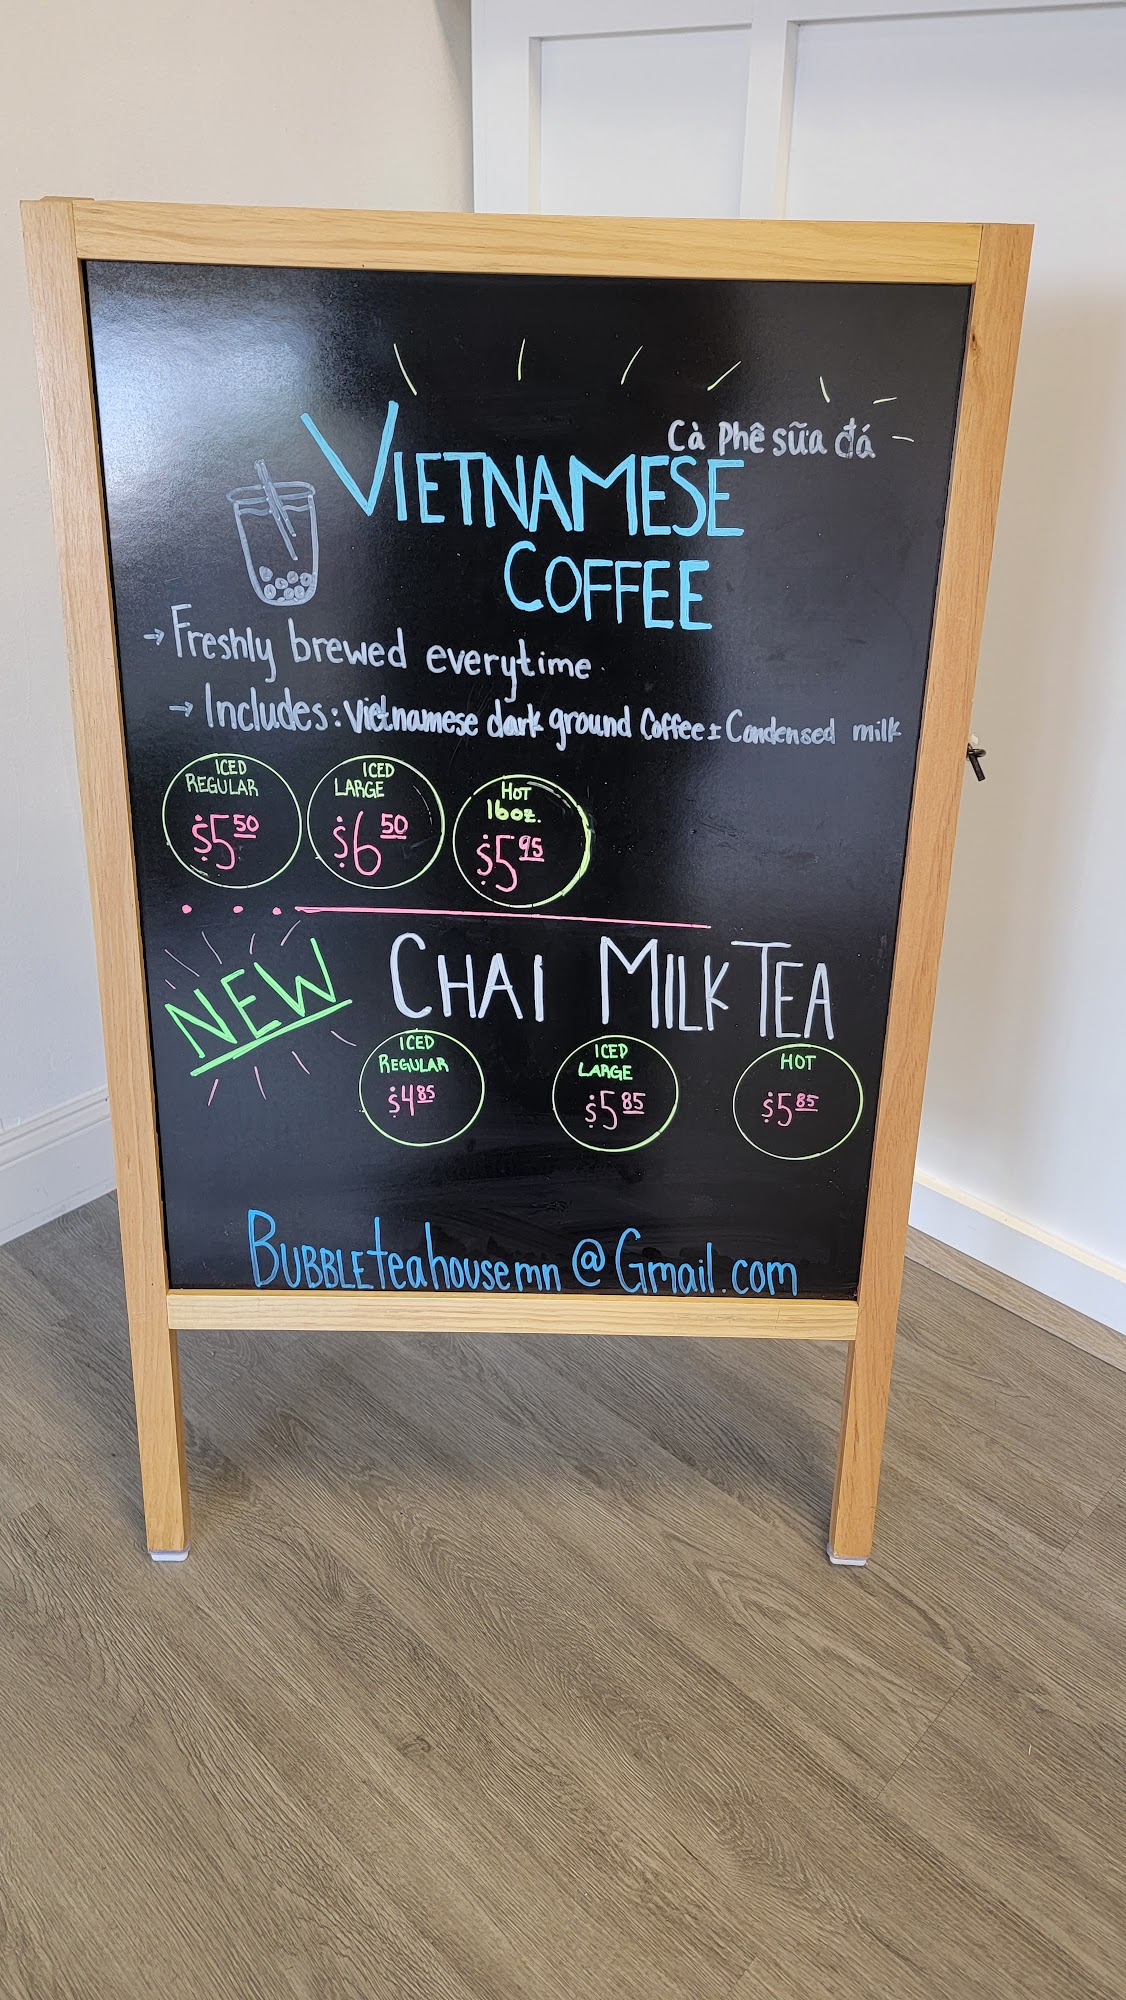 Cà Phê sữa đá
VIETNAMESE
COFFEE
→ Freshly brewed everytime
→ Includes: Vietnamese dark ground Coffee ± Condensed milk
ICED
REGULAR
$5 50
ICED
LARGE
$6 50
HOT
16oz.
$5 95
NEW
CHAI MILK TEA
ICED
REGULAR
$4 85
ICED
LARGE
$5 85
HOT
$5 85
BUBBLEteahousemn@Gmail.com